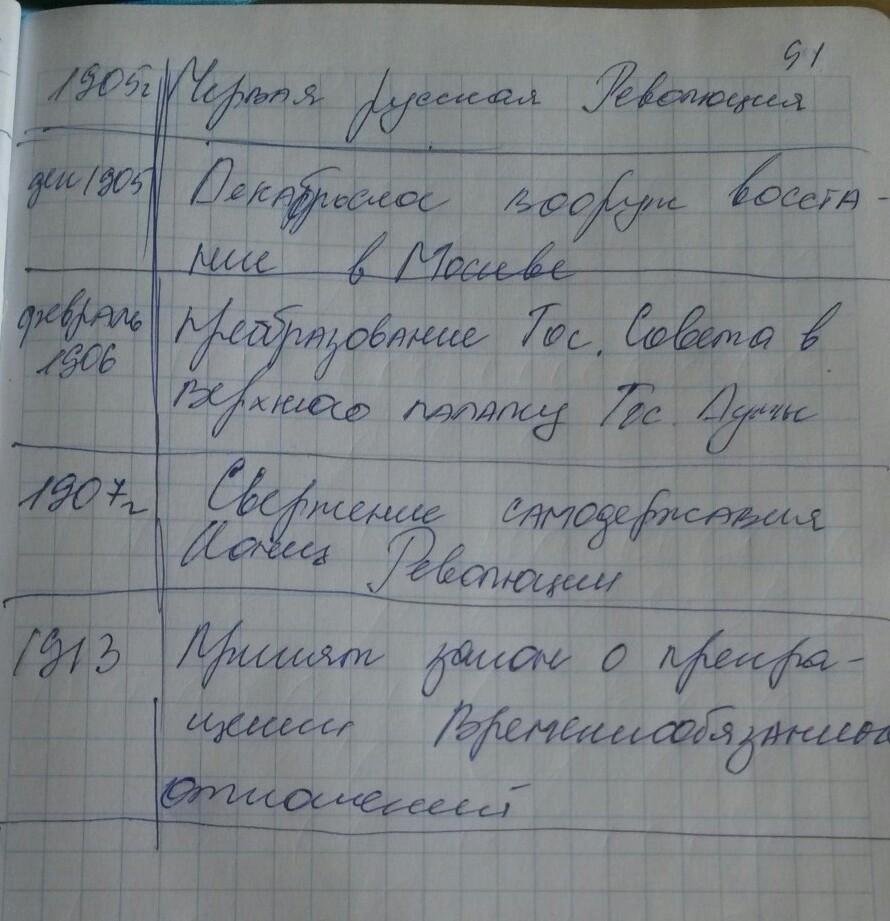 91
1905г Первая русская Революция
дек 1905 Декабрьское вооруж восста-
ние в Москве
февраль Преобразование Гос. Совета в
1906 Верхнюю палату Гос. Думы
1907г Свержение самодержавия
Конец Революции
1913 Принят закон о прекра-
щении Временнообязанных
отношений